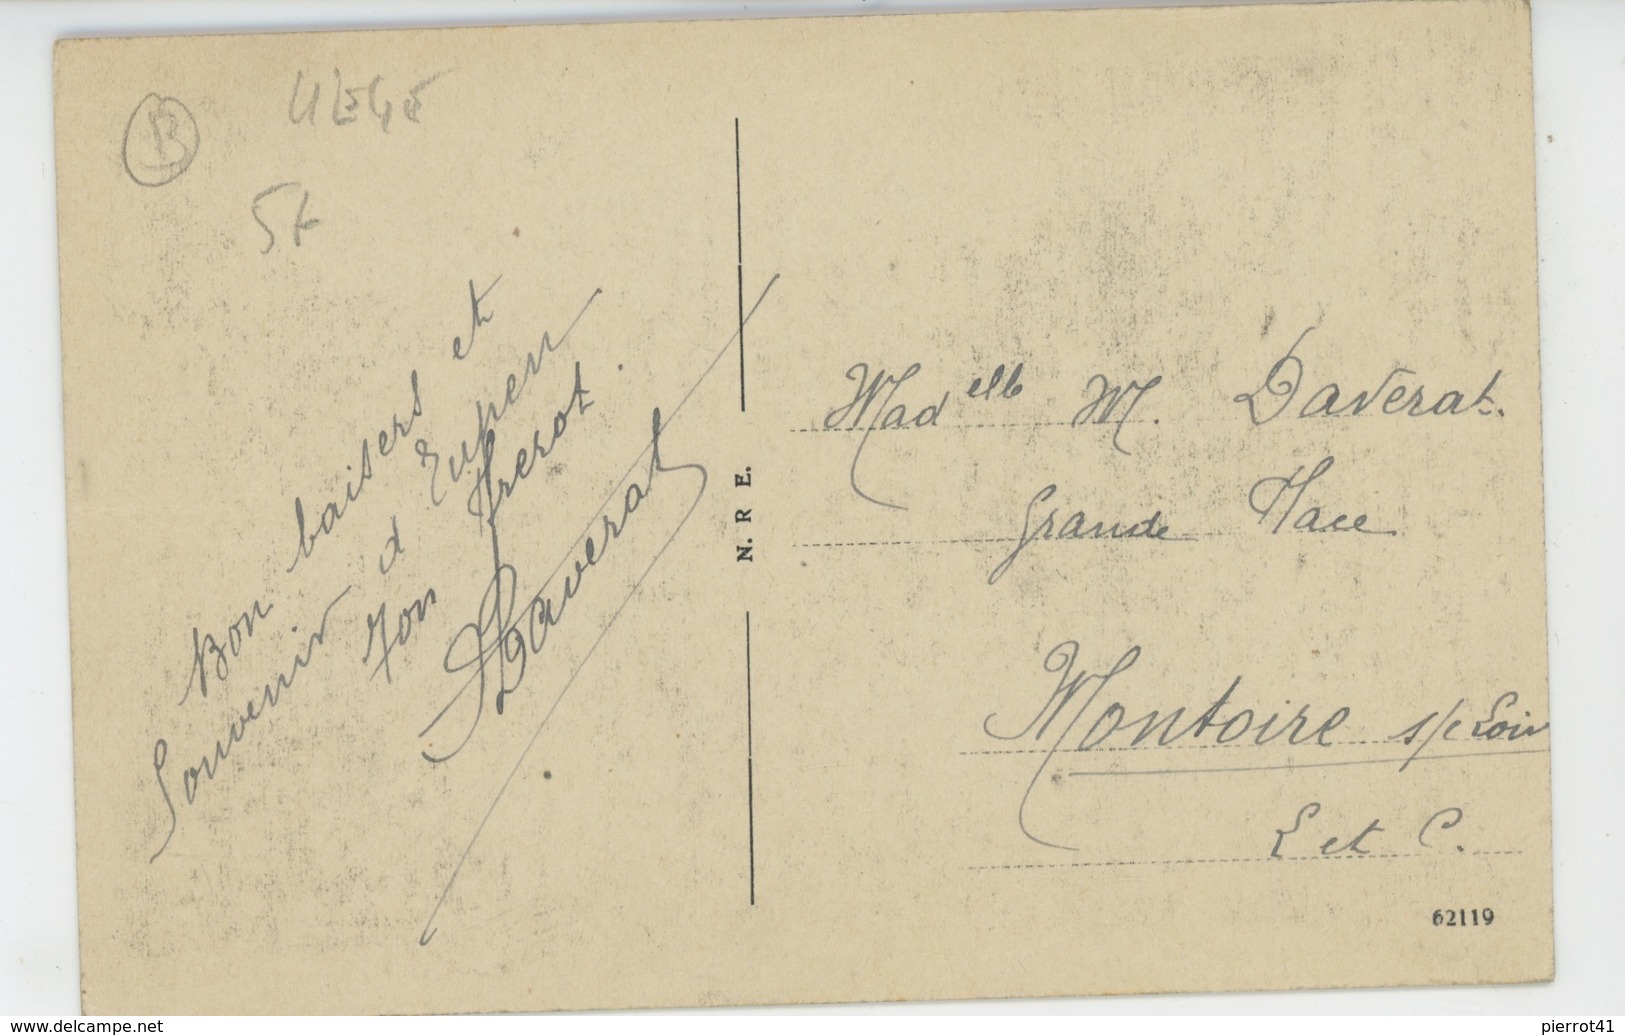 B
LIEGE
5k
Bon baisers et
Souvenir d Eupen
Ton frerot.
Daverat
N. R E.
Mad elle M. Daverat.
Grande Place
Montoire s/le Loir
L et C.
62119
www.delcampe.net
pierrot41